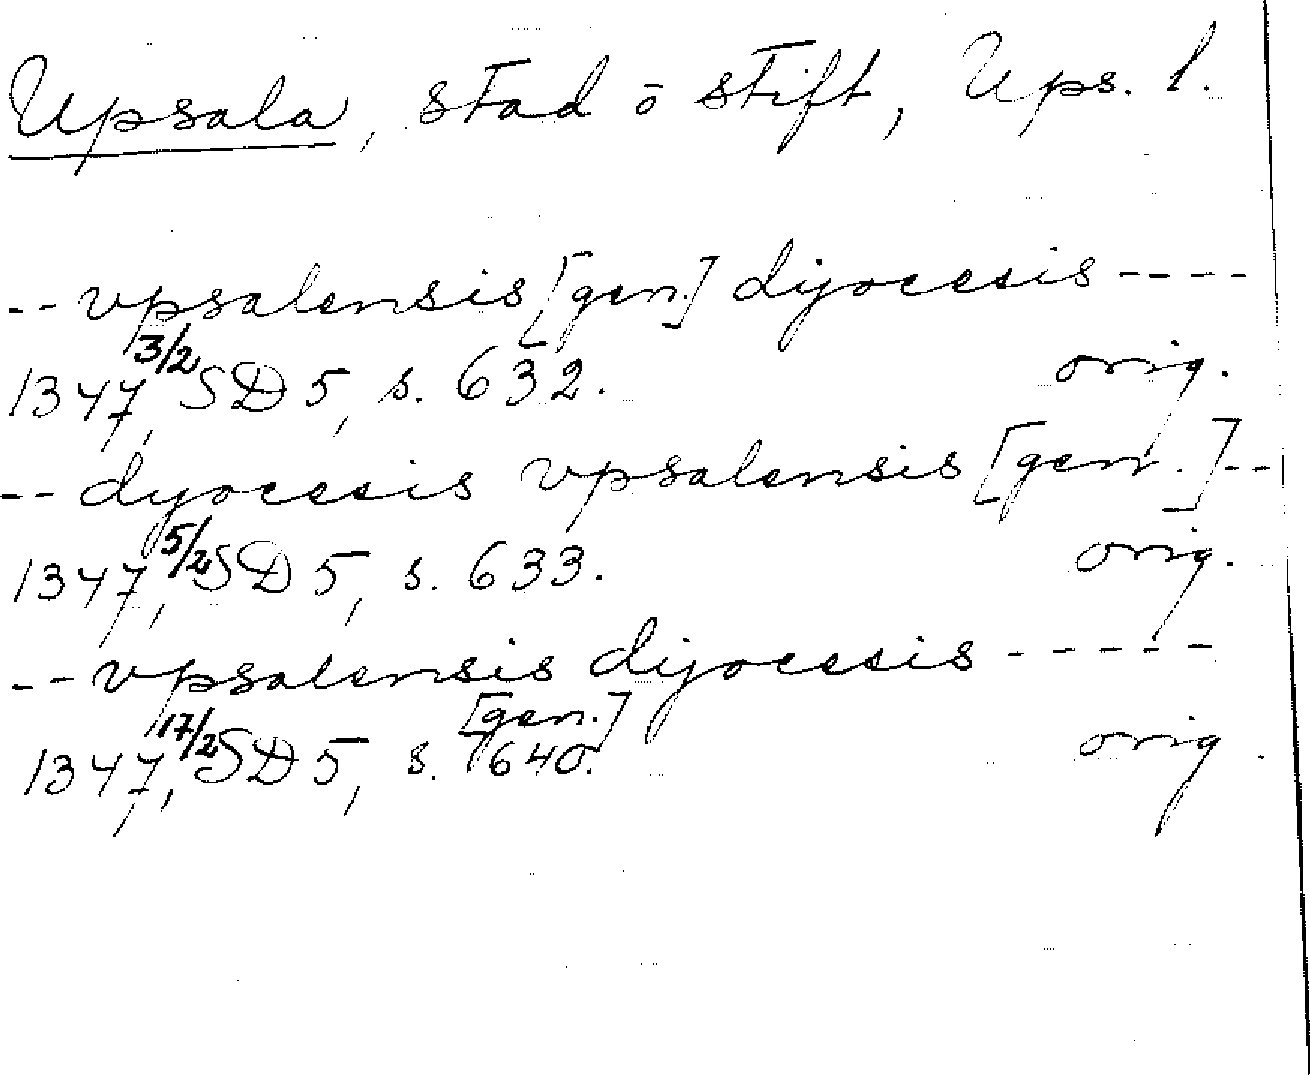 Upsala, stad o stift, Ups. l.
-- vpsalensis [gen.] dijocesis ----
1347 3/2, SD 5, s. 632. orig.
-- dyocesis vpsalensis [gen.] --
1347 5/2, SD 5, s. 633. orig.
-- vpsalensis dijocesis -----
[gen.]
1347 17/2, SD 5, s. 640. orig.